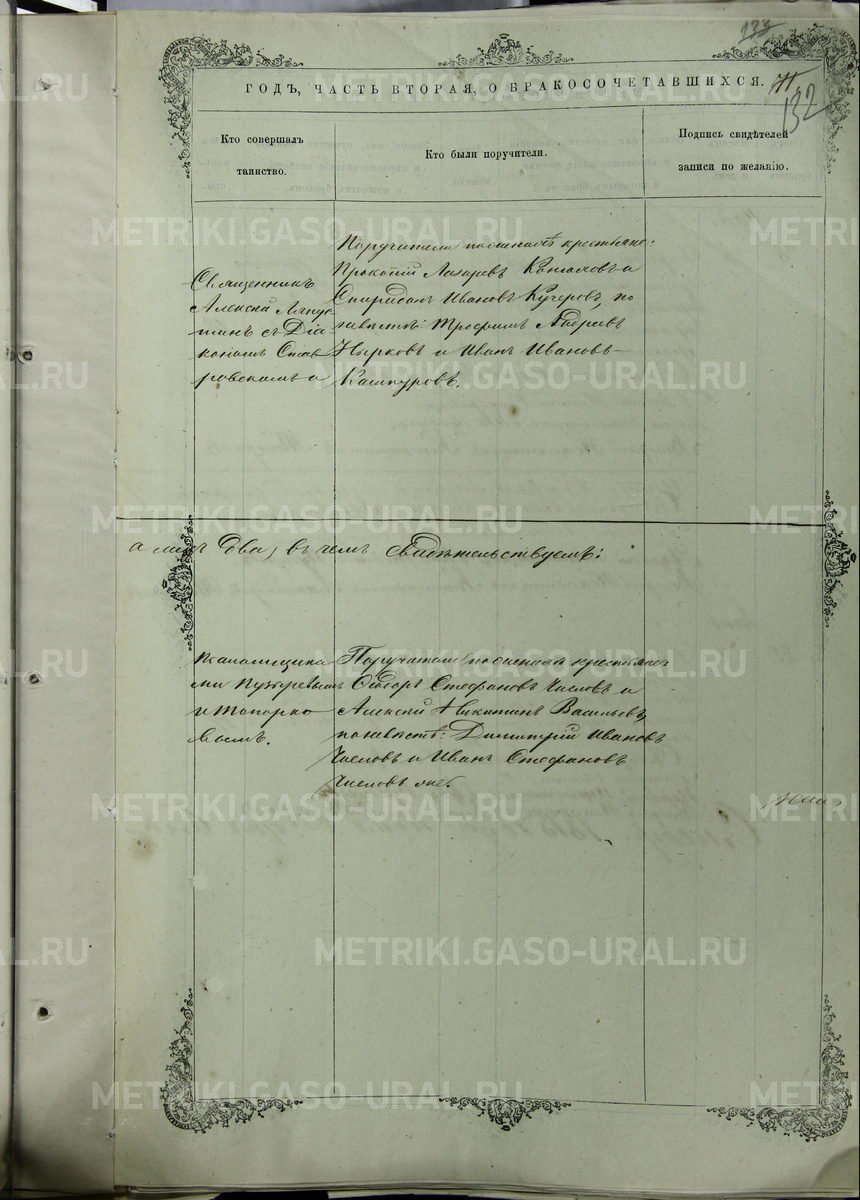 133
ГОДЪ, ЧАСТЬ ВТОРАЯ, О БРАКОСОЧЕТАВШИХСЯ.
132
Кто совершалъ
таинство.
Кто были поручители.
Подпись свидѣтелей
записи по желанію.
Священникъ
Алексѣй
съ Діа
кономъ Став
ровскимъ и
Поручатели по женихѣ крестьяне:
Прокопій Лазаревъ и
Спиридонъ Ивановъ Кучеровъ, по
невѣстѣ: Трофимъ Андреевъ
Нырковъ и Иванъ Ивановъ
Кашпуровъ.
два, въ чемъ свидѣтельствуемъ:
Псаломщика
ми Пузыревымъ
и Топорко
вымъ.
Поручатели по женихѣ крестьяне:
Ѳедоръ Стефановъ Числовъ и
Алексѣй Никитинъ Васильевъ,
по невѣстѣ: Димитрій Ивановъ
Числовъ и Иванъ Стефановъ
Числовъ же.
METRIKI.GASO-URAL.RU